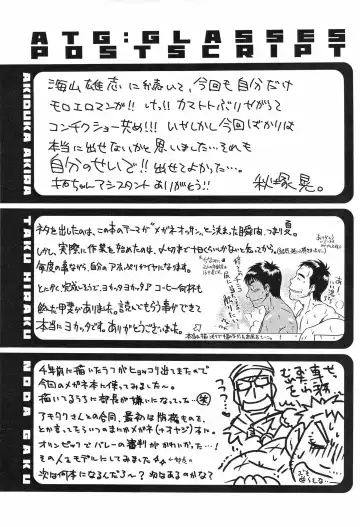 ATG:GLASSES
POSTSCRIPT
AKIDUKA AKIRA
海山雄志に続いて、今回も自分だけ
モロエロマンガ!! けっ!! カマトトぶりやがって
コンチクショー共め!!! いやしかし今回ばかりは
本当に出せないかと思いました…それも
自分のせいで!! 出せてよかった…。
杏ちゃんアシスタントありがとう!!
秋塚晃。
TAKU HIRAKU
ネタを出したのは、この本のテーマが"メガネオッサン"と決まった瞬間、つまり夏。
しかし、実際に作業を始めたのは、〆切まで10日くらいしかない
毎度の事ながら、自分のアホっぷりがイヤになります。
とにかく完成しそうで、ヨカッタヨカッタ♪ コーヒー何杯も
飲んだ甲斐がありました。読んでもらう事ができて
本当にヨカッタです。ありがとうございました。
NODA GAKU
4年前に描いたラフがヒョッコリ出てきたので
今回のメガネ本に使ってみました〜。
描いてるうちに部長が嫌いになっていった…(笑)
アキヅカさんとの合同、最初は防犯もので、
とか言ってたらいつのまにかメガネ(+オヤジ)本に。
オリンピックでバレーの審判がかわいかった…!
その人をモデルにしてみました
次は何本になるんだろ〜? 次はあるのかな?